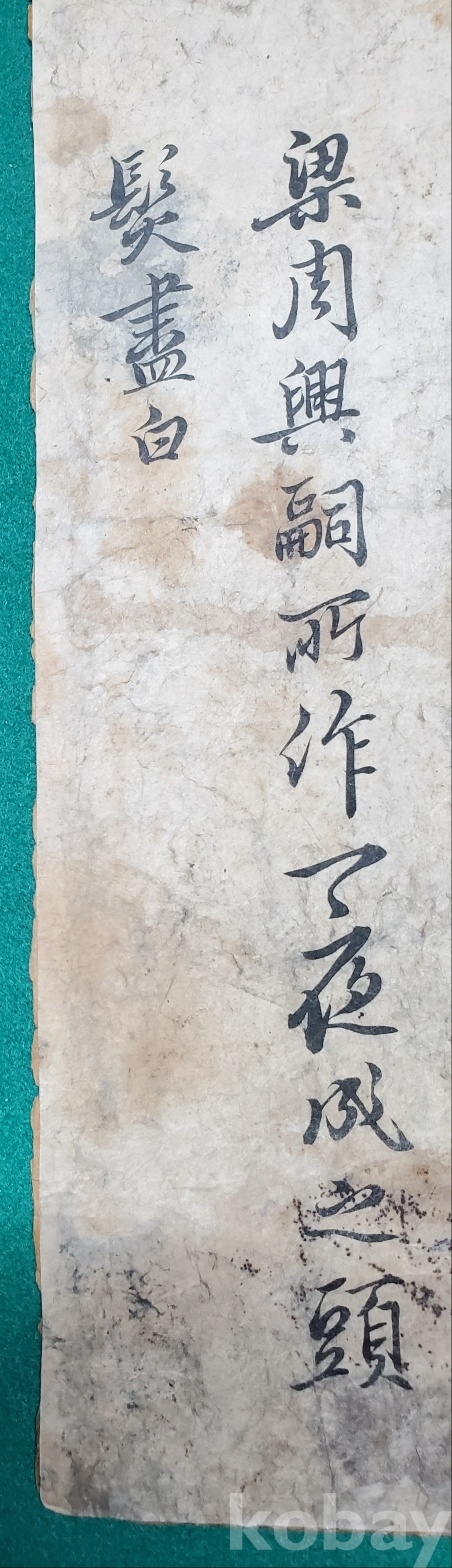 梁周興嗣所作一夜成之頭
鬂盡白
kobay